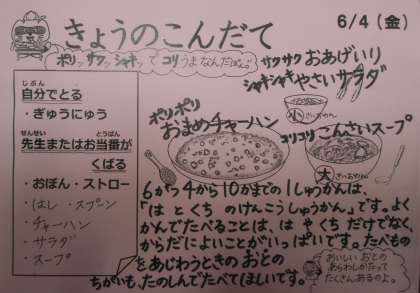 6/4(金)
きょうのこんだて
ポリッ サクッ シャキッ で コリうまなんだぽん。
サクサク おあげいり
シャキシャキ やさいサラダ
自分でとる
じぶん
・ぎゅうにゅう
先生またはお当番が
せんせい とうばん
くばる
・おぼん・ストロー
・はし・スプーン
・チャーハン
・サラダ
・スープ
ポリポリ
おまめチャーハン
小 さいおわん
コリコリ こんさいスープ
大 きいおわん
6がつ4から10かまでの1しゅうかんは、
「は と くち の けんこうしゅうかん」です。よく
かんでたべることは、は や くち だけでなく、
からだによいことがいっぱいです。たべもの
をあじわうときの おとの
ちがいも、たのしんでたべてほしいです。
おいしい おとの
あらわしかたって
たくさんあるのよ。